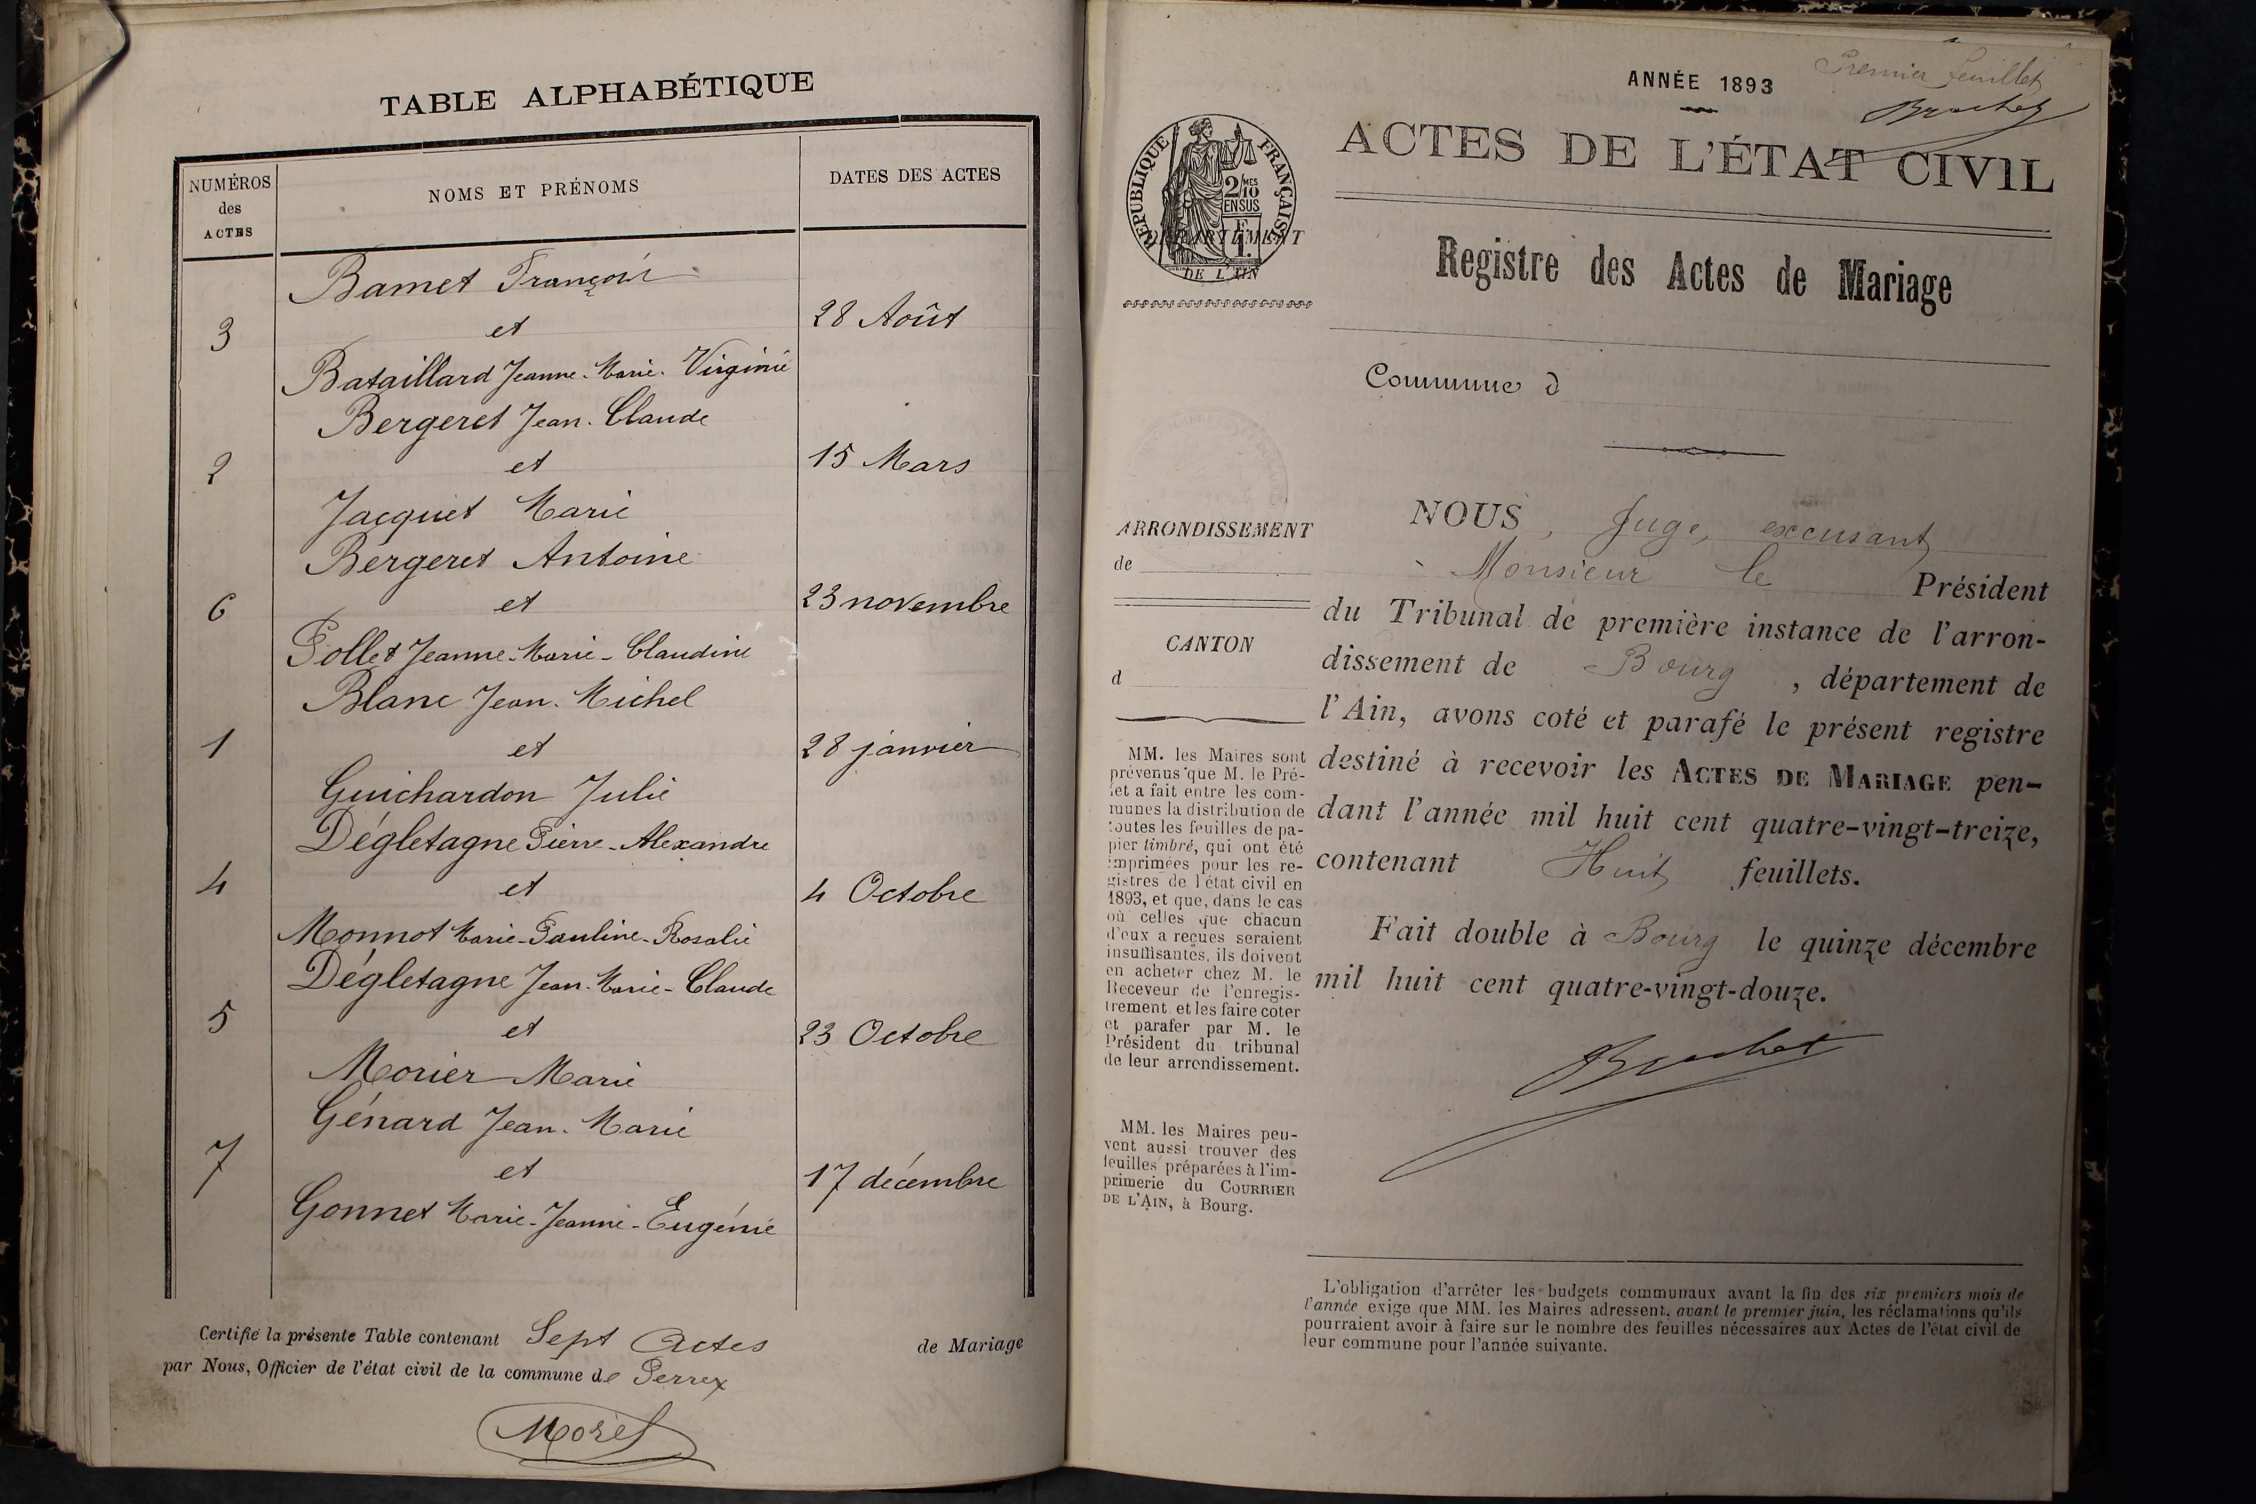 TABLE ALPHABÉTIQUE
NUMÉROS
des
ACTES
NOMS ET PRÉNOMS
DATES DES ACTES
Bamet François
3 et 28 Août
Bataillard Jeanne-Marie-Virginie
Bergeret Jean-Claude
2 et 15 Mars
Jacquet Marie
Bergeret Antoine
6 et 23 novembre
Pollet Jeanne-Marie-Claudine
Blanc Jean-Michel
1 et 28 janvier
Guichardon Julie
Dégletagne Pierre-Alexandre
4 et 4 Octobre
Monnot Marie-Pauline-Rosalie
Dégletagne Jean-Marie-Claude
5 et 23 Octobre
Morier Marie
Génard Jean-Marie
7 et 17 décembre
Gonnet Marie-Jeanne-Eugénie
Certifié la présente Table contenant Sept Actes de Mariage
par Nous, Officier de l'état civil de la commune de Perrex
Morel
Premier feuillet
Brochet
ANNÉE 1893
ACTES DE L'ÉTAT CIVIL
RÉPUBLIQUE FRANÇAISE
2/10 MES
EN SUS
F
1.
DÉPARTEMENT
DE L'AIN
Registre des Actes de Mariage
Commune d
ARRONDISSEMENT
de
CANTON
d
MM. les Maires sont
prévenus que M. le Pré-
fet a fait entre les com-
munes la distribution de
toutes les feuilles de pa-
pier timbré, qui ont été
imprimées pour les re-
gistres de l'état civil en
1893, et que, dans le cas
où celles que chacun
d'eux a reçues seraient
insuffisantes, ils doivent
en acheter chez M. le
Receveur de l'enregis-
trement et les faire coter
et parafer par M. le
Président du tribunal
de leur arrondissement.
MM. les Maires peu-
vent aussi trouver des
feuilles préparées à l'im-
primerie du COURRIER
DE L'AIN, à Bourg.
NOUS, Juge, excusant
Monsieur le Président
du Tribunal de première instance de l'arron-
dissement de Bourg, département de
l'Ain, avons coté et parafé le présent registre
destiné à recevoir les ACTES DE MARIAGE pen-
dant l'année mil huit cent quatre-vingt-treize,
contenant Huit feuillets.
Fait double à Bourg le quinze décembre
mil huit cent quatre-vingt-douze.
Brochet
L'obligation d'arrêter les budgets communaux avant la fin des six premiers mois de
l'année exige que MM. les Maires adressent, avant le premier juin, les réclamations qu'ils
pourraient avoir à faire sur le nombre des feuilles nécessaires aux Actes de l'état civil de
leur commune pour l'année suivante.